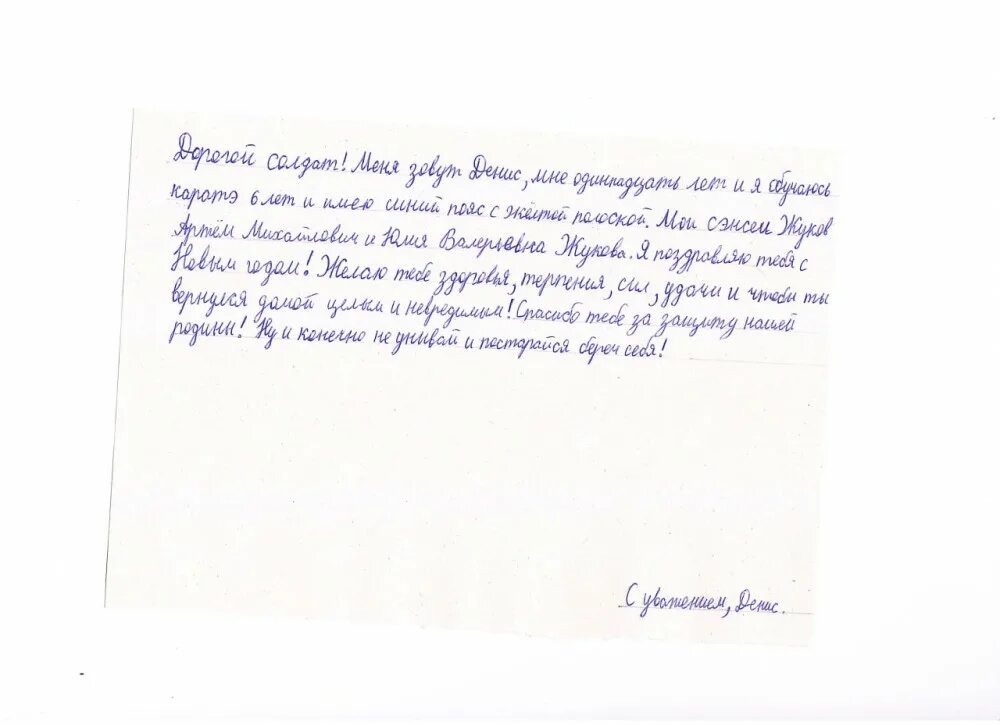 Дорогой солдат! Меня зовут Денис, мне одиннадцать лет и я обучаюсь
каратэ 6 лет и имею синий пояс с жёлтой полоской. Мои сэнсеи Жуков
Артём Михайлович и Юлия Валерьевна Жукова. Я поздравляю тебя с
Новым годом! Желаю тебе здоровья, терпения, сил, удачи и чтобы ты
вернулся домой целым и невредимым! Спасибо тебе за защиту нашей
родины! Ну и конечно не унывай и постарайся береч себя!
С уважением, Денис.